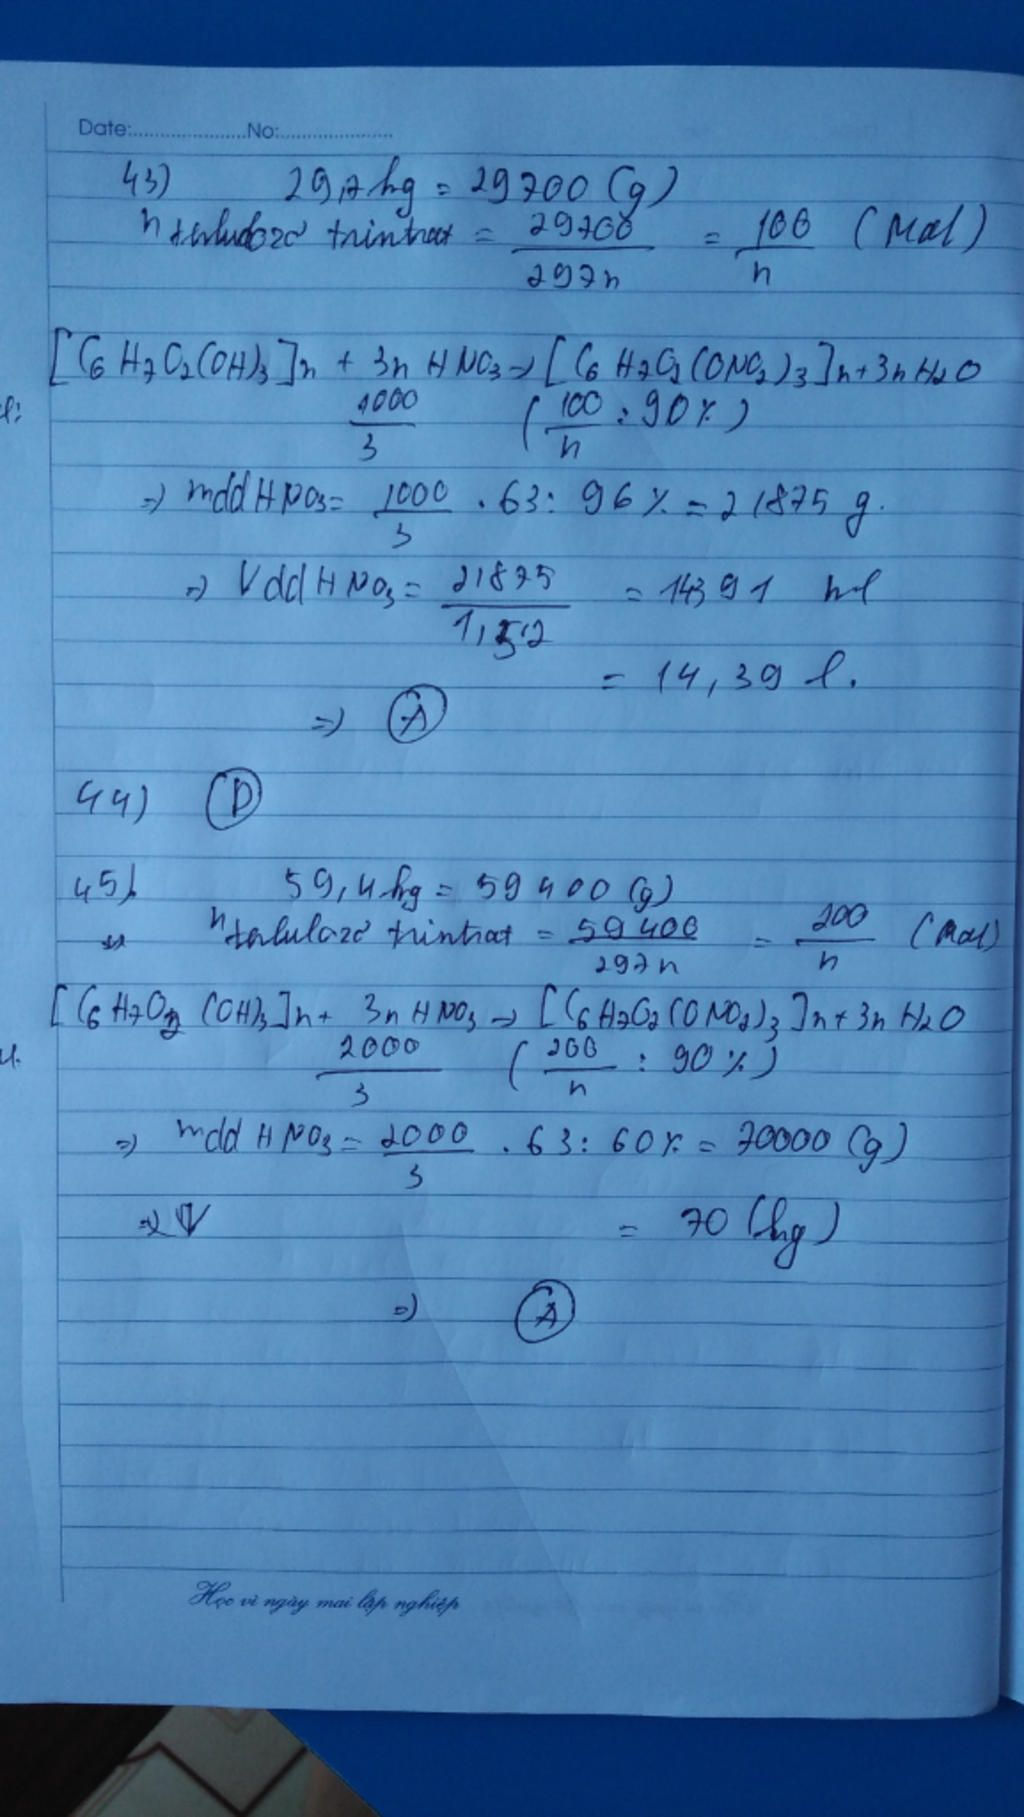 Date:......................No:....................
43) 29,7 kg = 29700 (g)
n trinitrat = 29700 / 297n = 100 / n (Mol)
[C6H7O2(OH)3]n + 3nHNO3 → [C6H7O2(ONO2)3]n + 3nH2O
1000 / 3 (100 / n : 90%)
=> mdd HNO3 = 1000 / 3 . 63 : 96% = 21875 g.
=> Vdd HNO3 = 21875 / 1,52 = 14391 ml
= 14,39 l.
=> A
44) D
45) 59,4 kg = 59400 (g)
n trintrat = 59400 / 297n = 200 / n (Mol)
[C6H7O2(OH)3]n + 3nHNO3 → [C6H7O2(ONO2)3]n + 3nH2O
2000 / 3 (200 / n : 90%)
=> mdd HNO3 = 2000 / 3 . 63 : 60% = 70000 (g)
=> V = 70 (kg)
=> A
Học vì ngày mai lập nghiệp